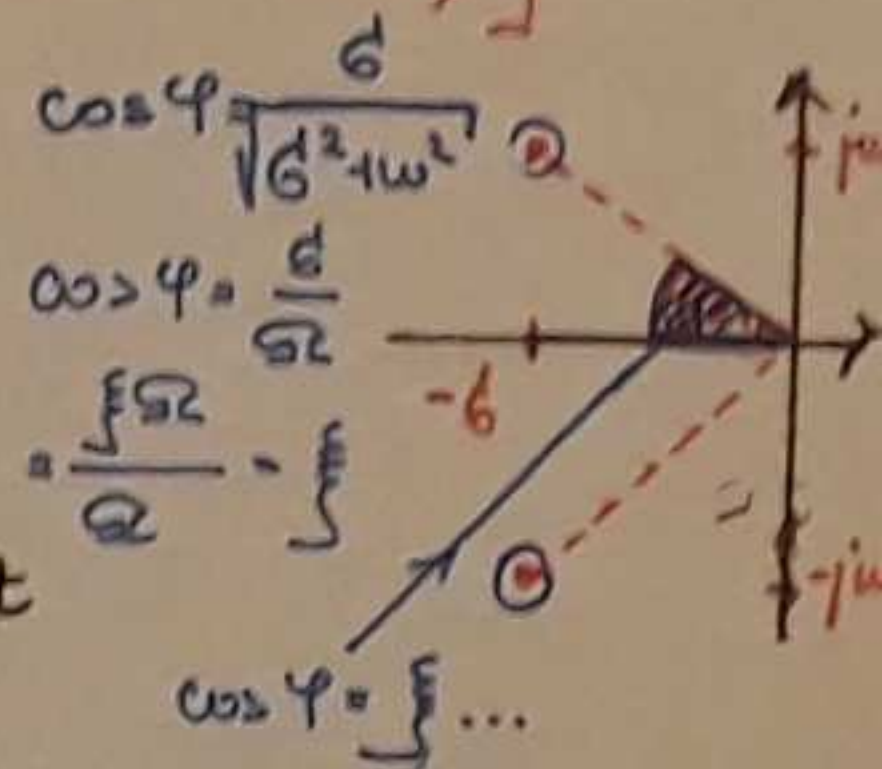 cos φ = σ / √(σ² + ω²)
cos φ = σ / Ω
= ξΩ / Ω = ξ
jω
-σ
-jω
t
cos φ = ξ ...